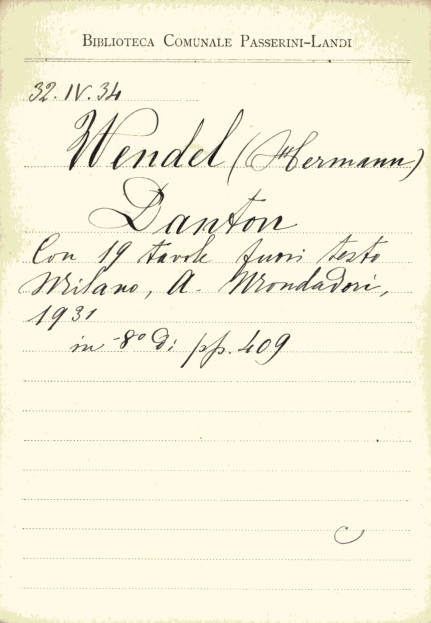 BIBLIOTECA COMUNALE PASSERINI-LANDI
32. IV. 34
Wendel (Hermann)
Danton
Con 19 tavole fuori testo
Milano, A. Mondadori,
1931
in -8º di pp. 409